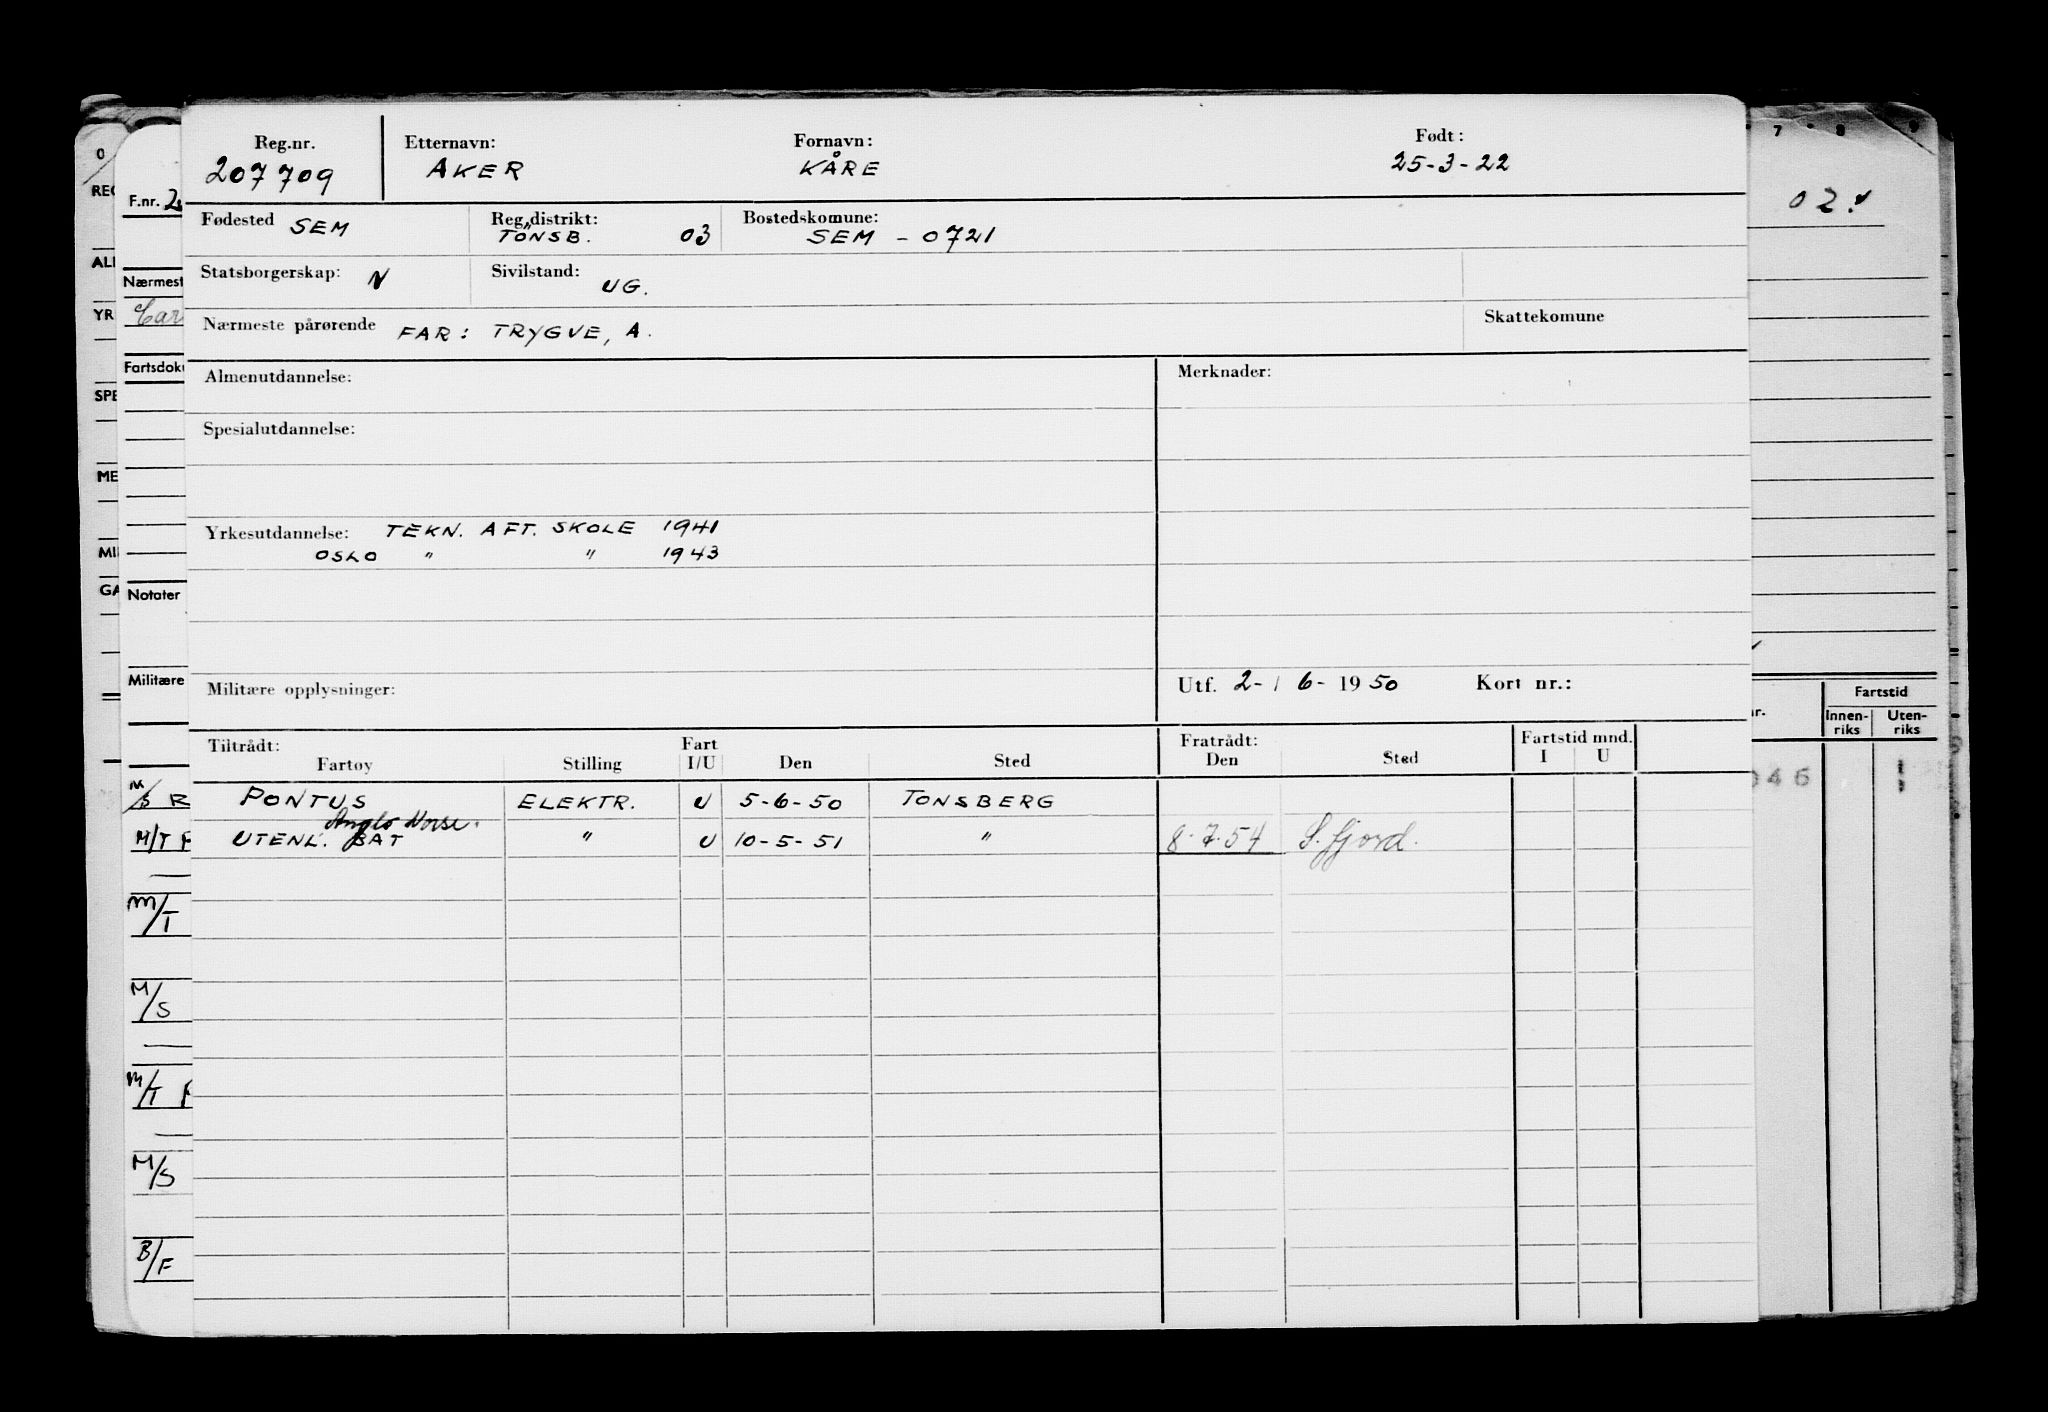 Reg.nr. Etternavn: Fornavn: Født:
207709 AKER KÅRE 25-3-22
Fødested SEM Reg.distrikt: TÖNSB. 03 Bostedskomune: SEM - 0721
Statsborgerskap: N Sivilstand: UG.
Nærmeste pårørende FAR: TRYGVE, A. Skattekomune
Almenutdannelse: Merknader:
Spesialutdannelse:
Yrkesutdannelse: TEKN. AFT. SKOLE 1941
OSLO " " 1943
Militære opplysninger: Utf. 2- / 6- 1950 Kort nr.:
Tiltrådt: Fart Fratrådt: Fartstid mnd.
Fartøy Stilling I/U Den Sted Den Sted I U
PONTUS ELEKTR. U 5-6-50 TONSBERG
Anglo Norse.
UTENL. BÅT " U 10-5-51 " 8.7.54 S. fjord.
0
REG
F.nr. 2
ALL
Nærmest
YR
Car
Fartsdoku
SPE
ME
MI
GA
Notater
Militære
M/S R
M/T
M/T
M/S
M/T
M/S
B/F
7 8 9
02.
nr. Fartstid
Innen-riks Uten-riks
046